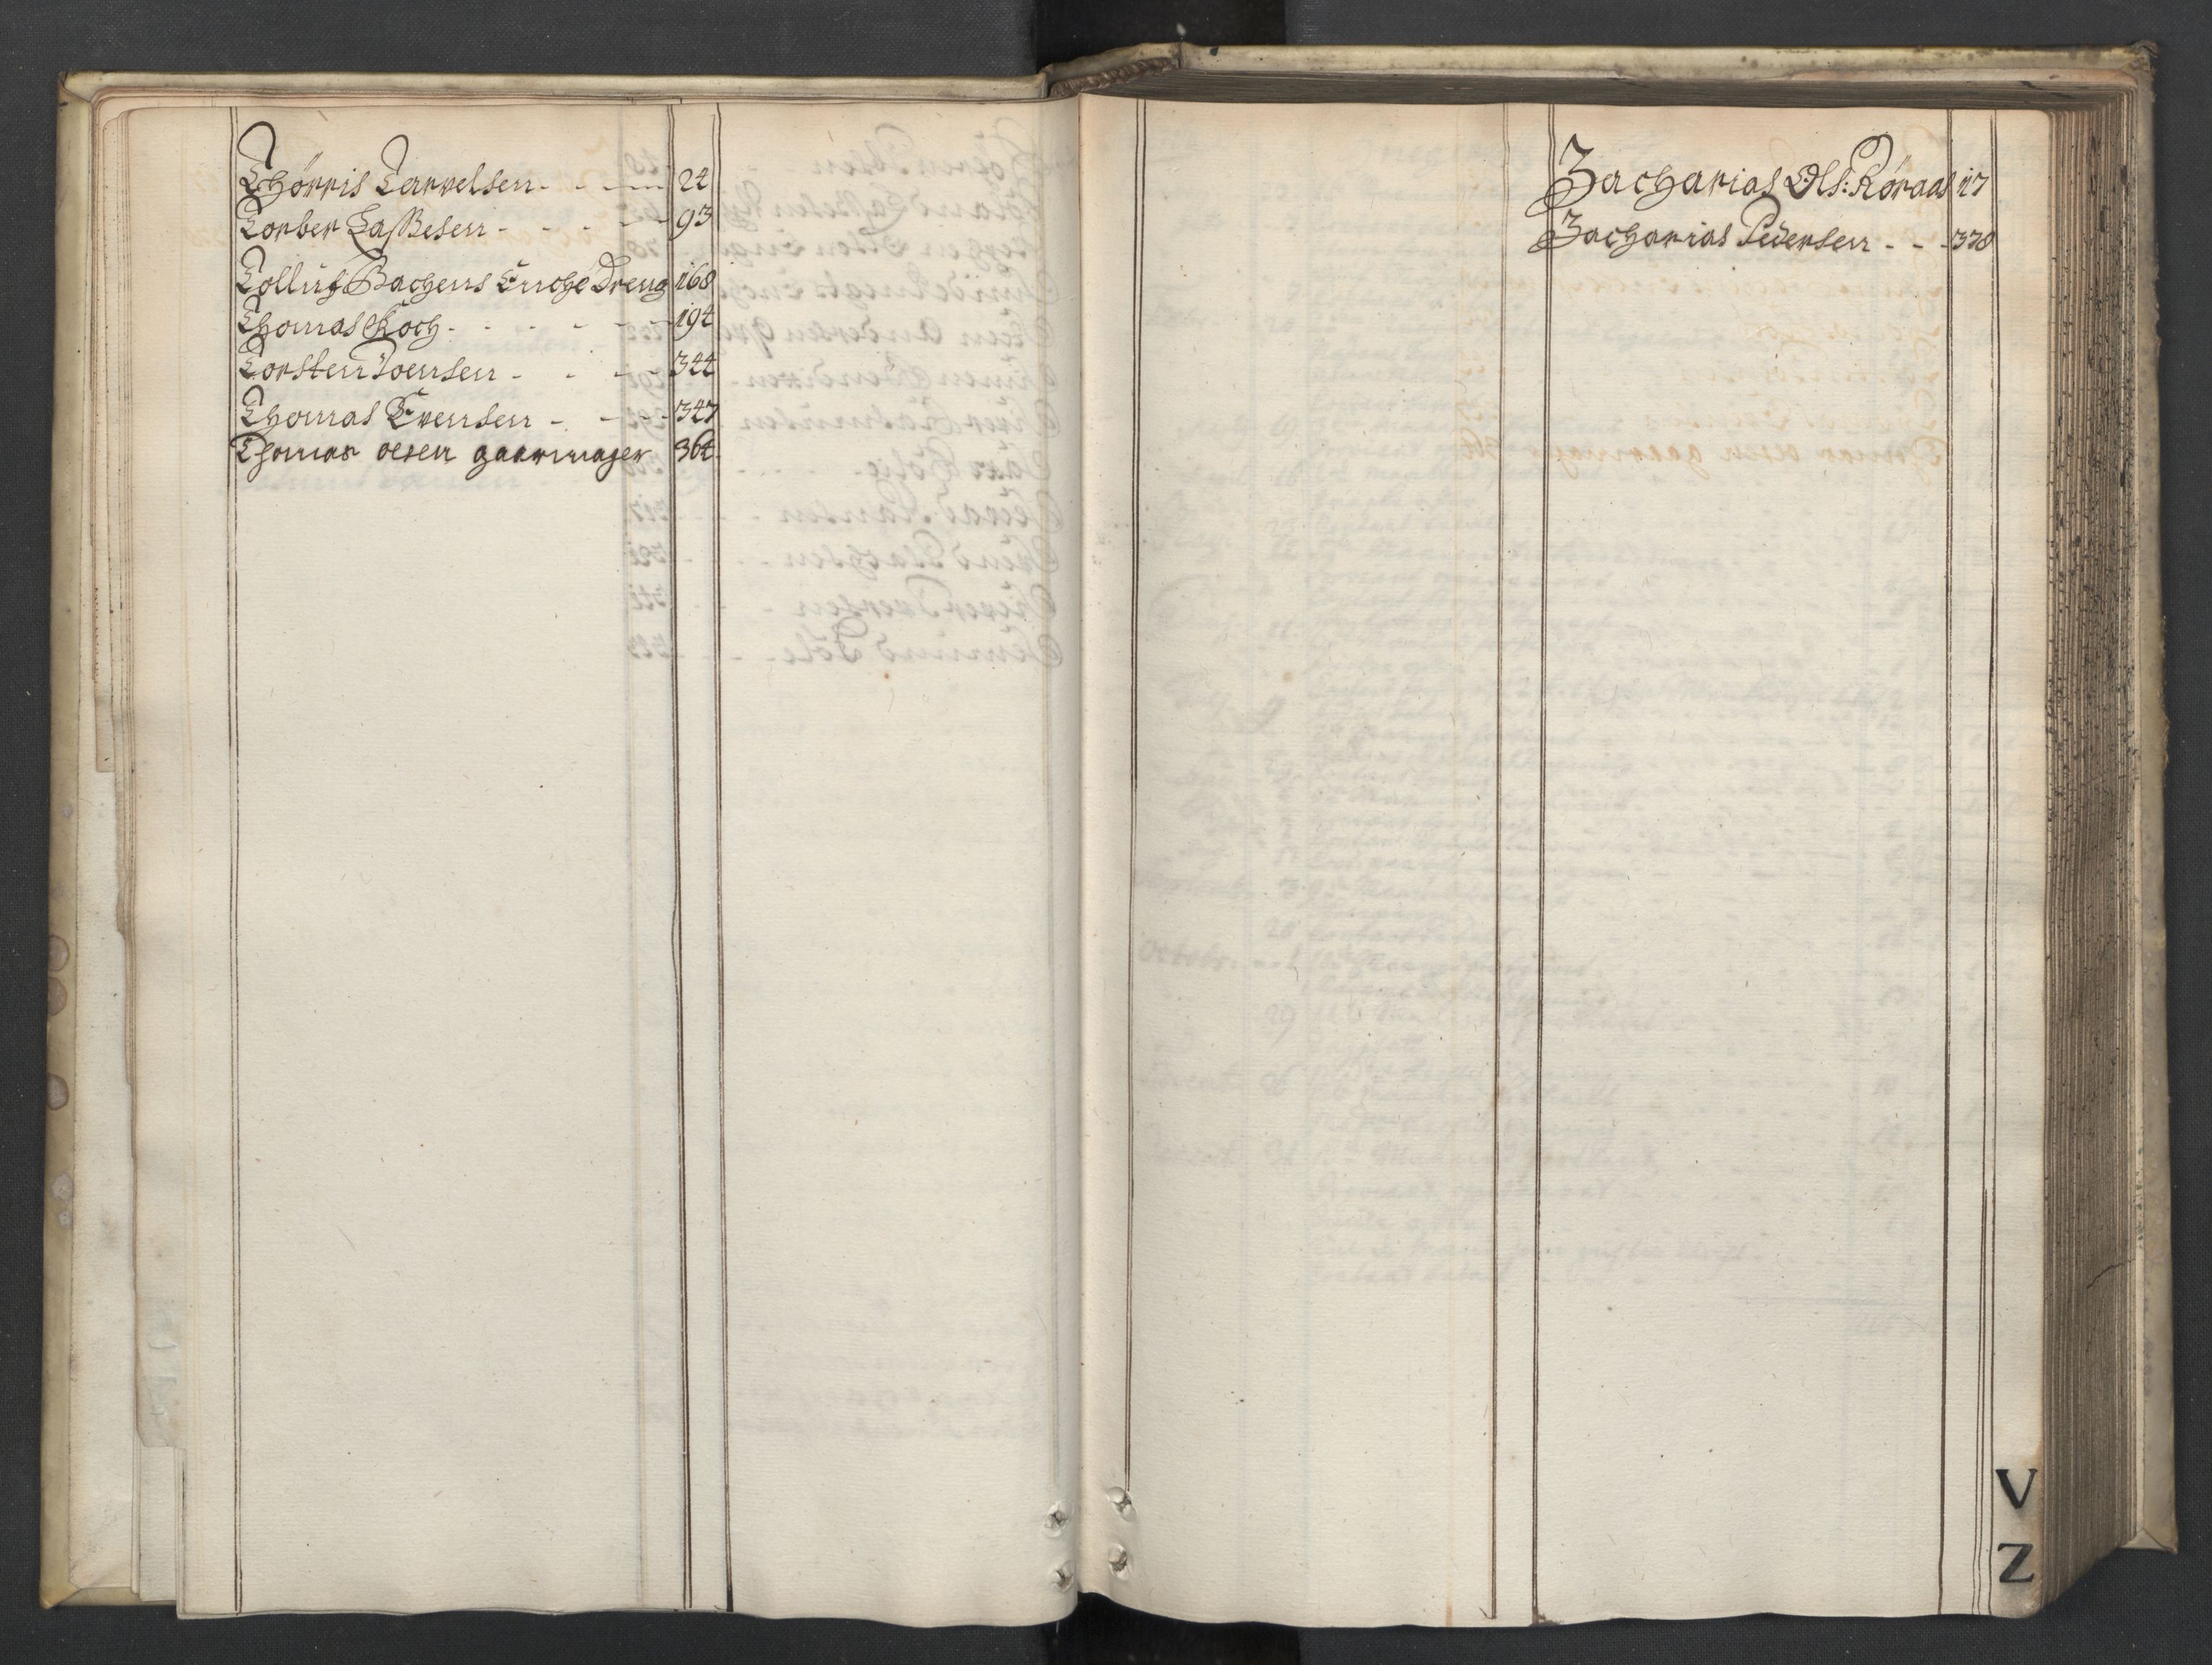 Thørris Tarrelsen - - - 24
Torber Lassesen - - - - 93
Tolluf Bachens Enche Dreng 168
Thomas Koch - - - - - 194
Torsten Joensen - - - 344
Thomas Evensen - - - 347
Thomas olsen gaarmager 364
Zacharias Ols: Røraas 117
Zacharias Pedersen - - - 378
V
Z